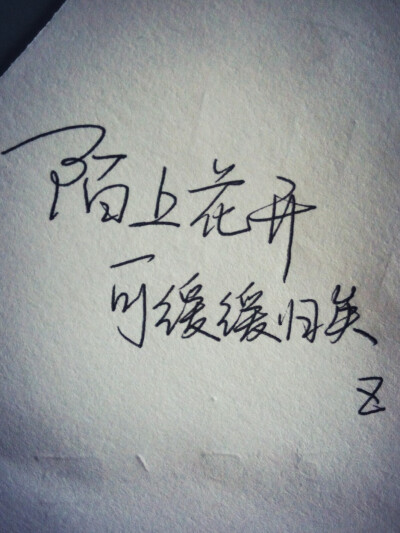 陌上花开
可缓缓归矣
Z